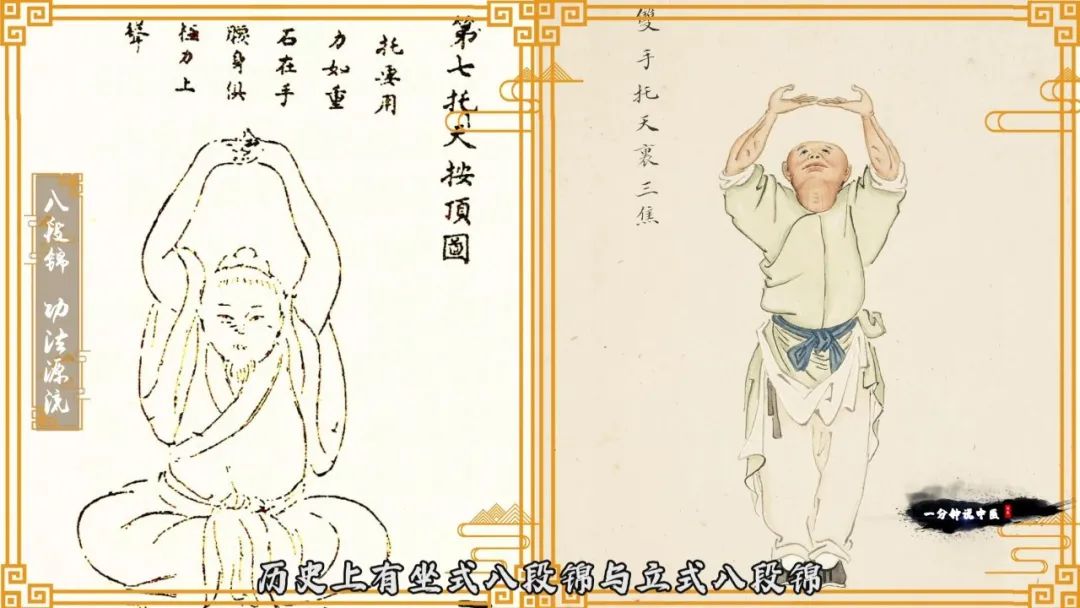 第七托天按頂圖
托要用
力如重
石在手
腰身俱
極力上
聳
雙手托天裏三焦
八段锦 功法源流
一分钟说中医
历史上有坐式八段锦与立式八段锦